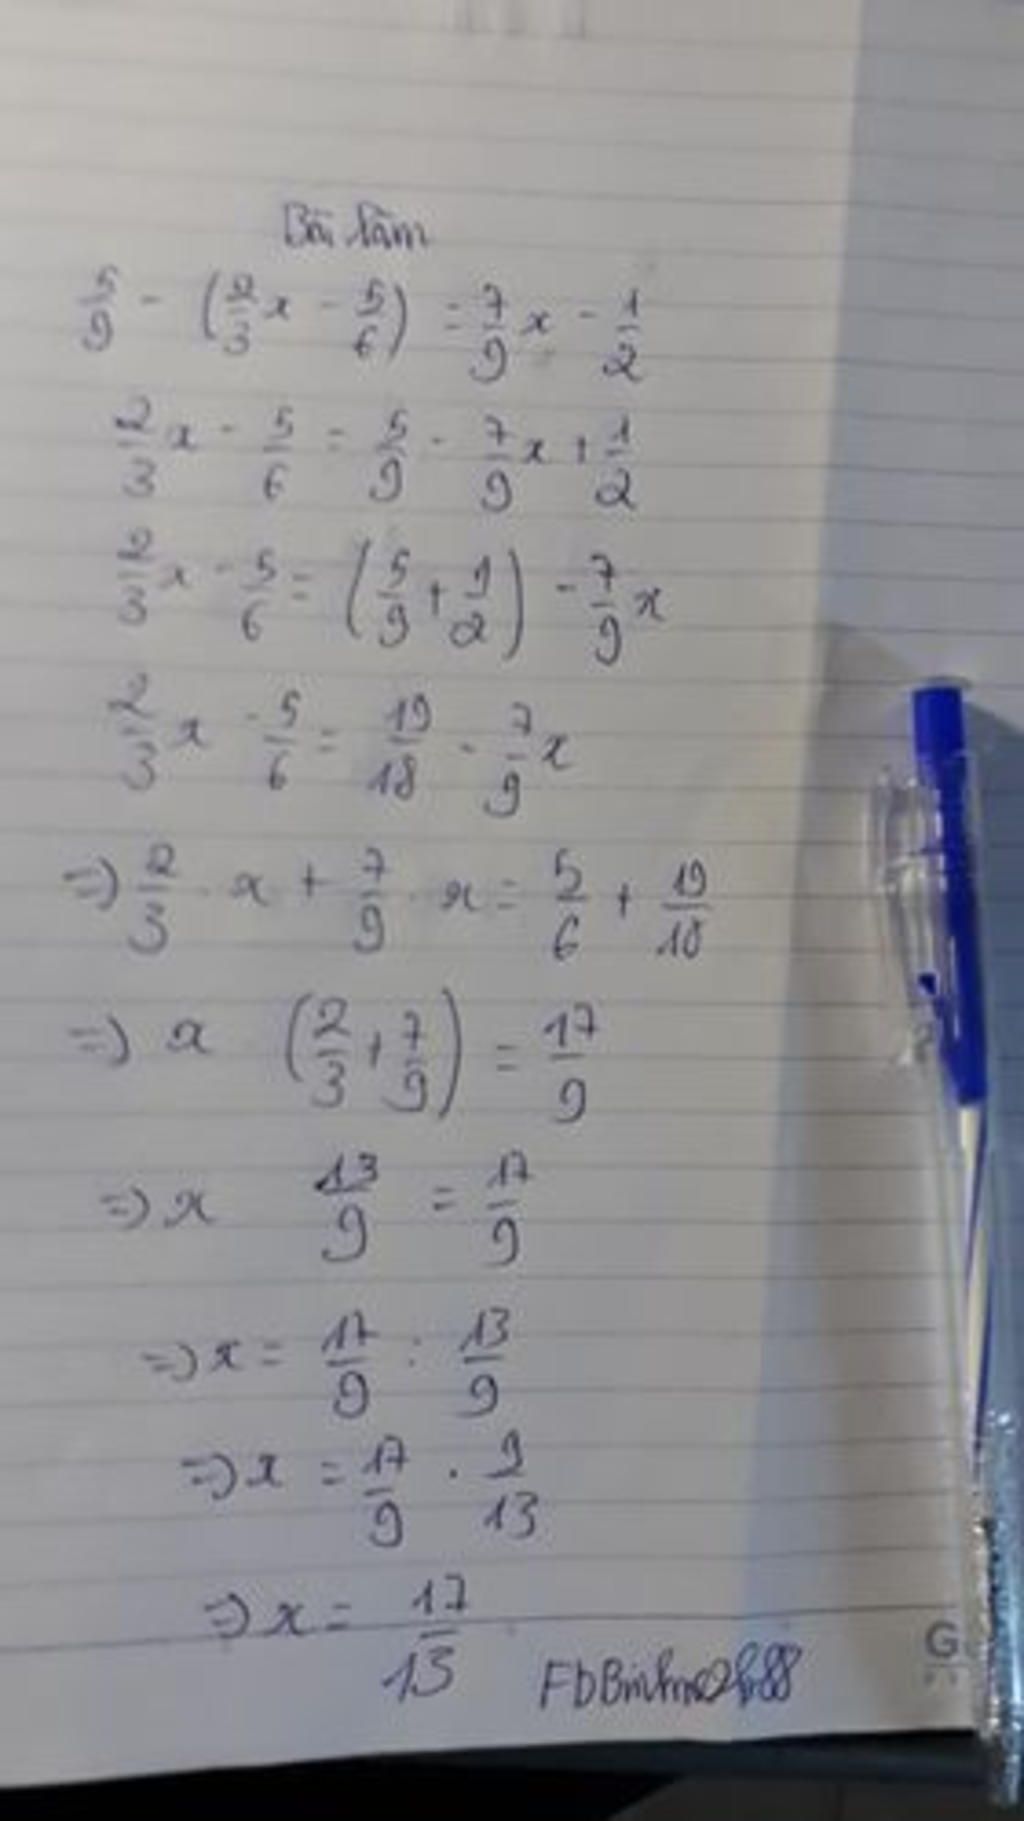 Bài làm
5/9 - (2/3 x - 5/6) = 7/9 x - 1/2
2/3 x - 5/6 = 5/9 - 7/9 x + 1/2
2/3 x - 5/6 = (5/9 + 1/2) - 7/9 x
2/3 x - 5/6 = 19/18 - 7/9 x
=> 2/3 . x + 7/9 . x = 5/6 + 19/18
=> x (2/3 + 7/9) = 17/9
=> x 13/9 = 17/9
=> x = 17/9 : 13/9
=> x = 17/9 . 9/13
=> x = 17/13
G